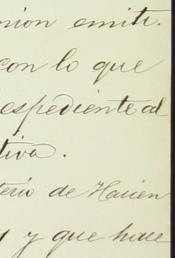 nion emiti.
con lo que
espediente al
tiva.
terio de Hacien
y que hace